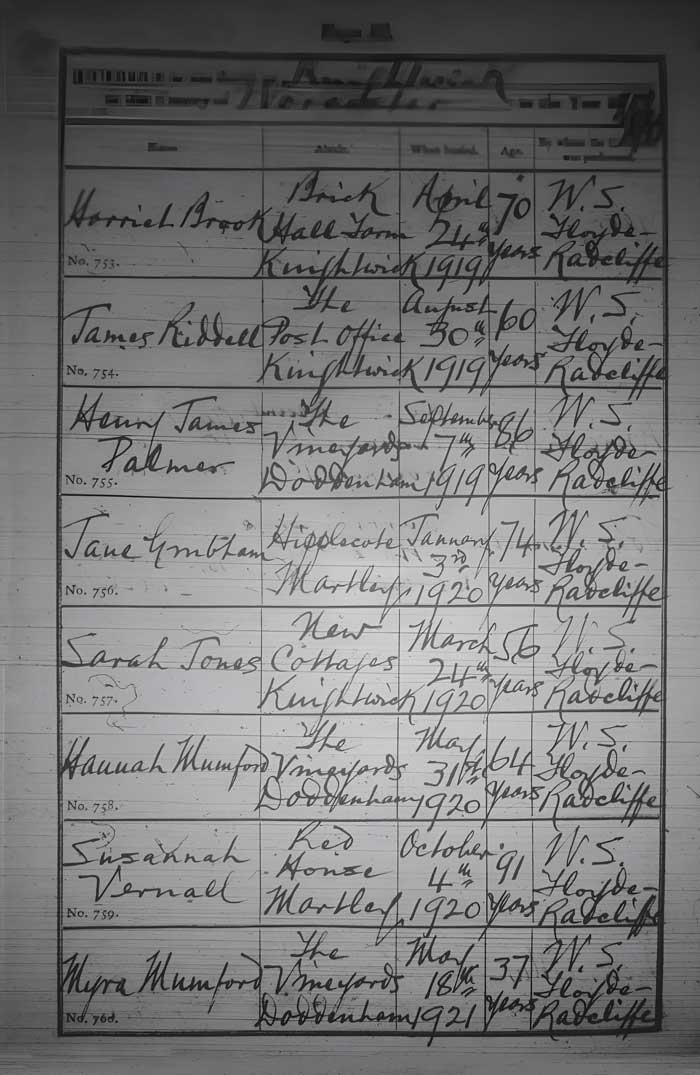 Name. Abode. When buried. Age. By whom the
Harriet Brook
Brick
Hall Farm
Knightwick
April
24th
1919
70
years
W. S.
Floyde-
Radcliffe
No. 753.
James Riddell
The
Post Office
Knightwick
August
30th
1919
60
years
W. S.
Floyde-
Radcliffe
No. 754.
Henry James
Palmer
The
Vineyards
Doddenham
September
7th
1919
86
years
W. S.
Floyde-
Radcliffe
No. 755.
Jane
Martley
January
3rd
1920
74
years
W. S.
Floyde-
Radcliffe
No. 756.
Sarah Jones
New
Cottages
Knightwick
March
24th
1920
56
years
W. S.
Floyde-
Radcliffe
No. 757.
Hannah Mumford
The
Vineyards
Doddenham
May
31st
1920
64
years
W. S.
Floyde-
Radcliffe
No. 758.
Susannah
Vernall
Red
House
Martley
October
4th
1920
91
years
W. S.
Floyde-
Radcliffe
No. 759.
Myra Mumford
The
Vineyards
Doddenham
May
18th
1921
37
years
W. S.
Floyde-
Radcliffe
No. 760.